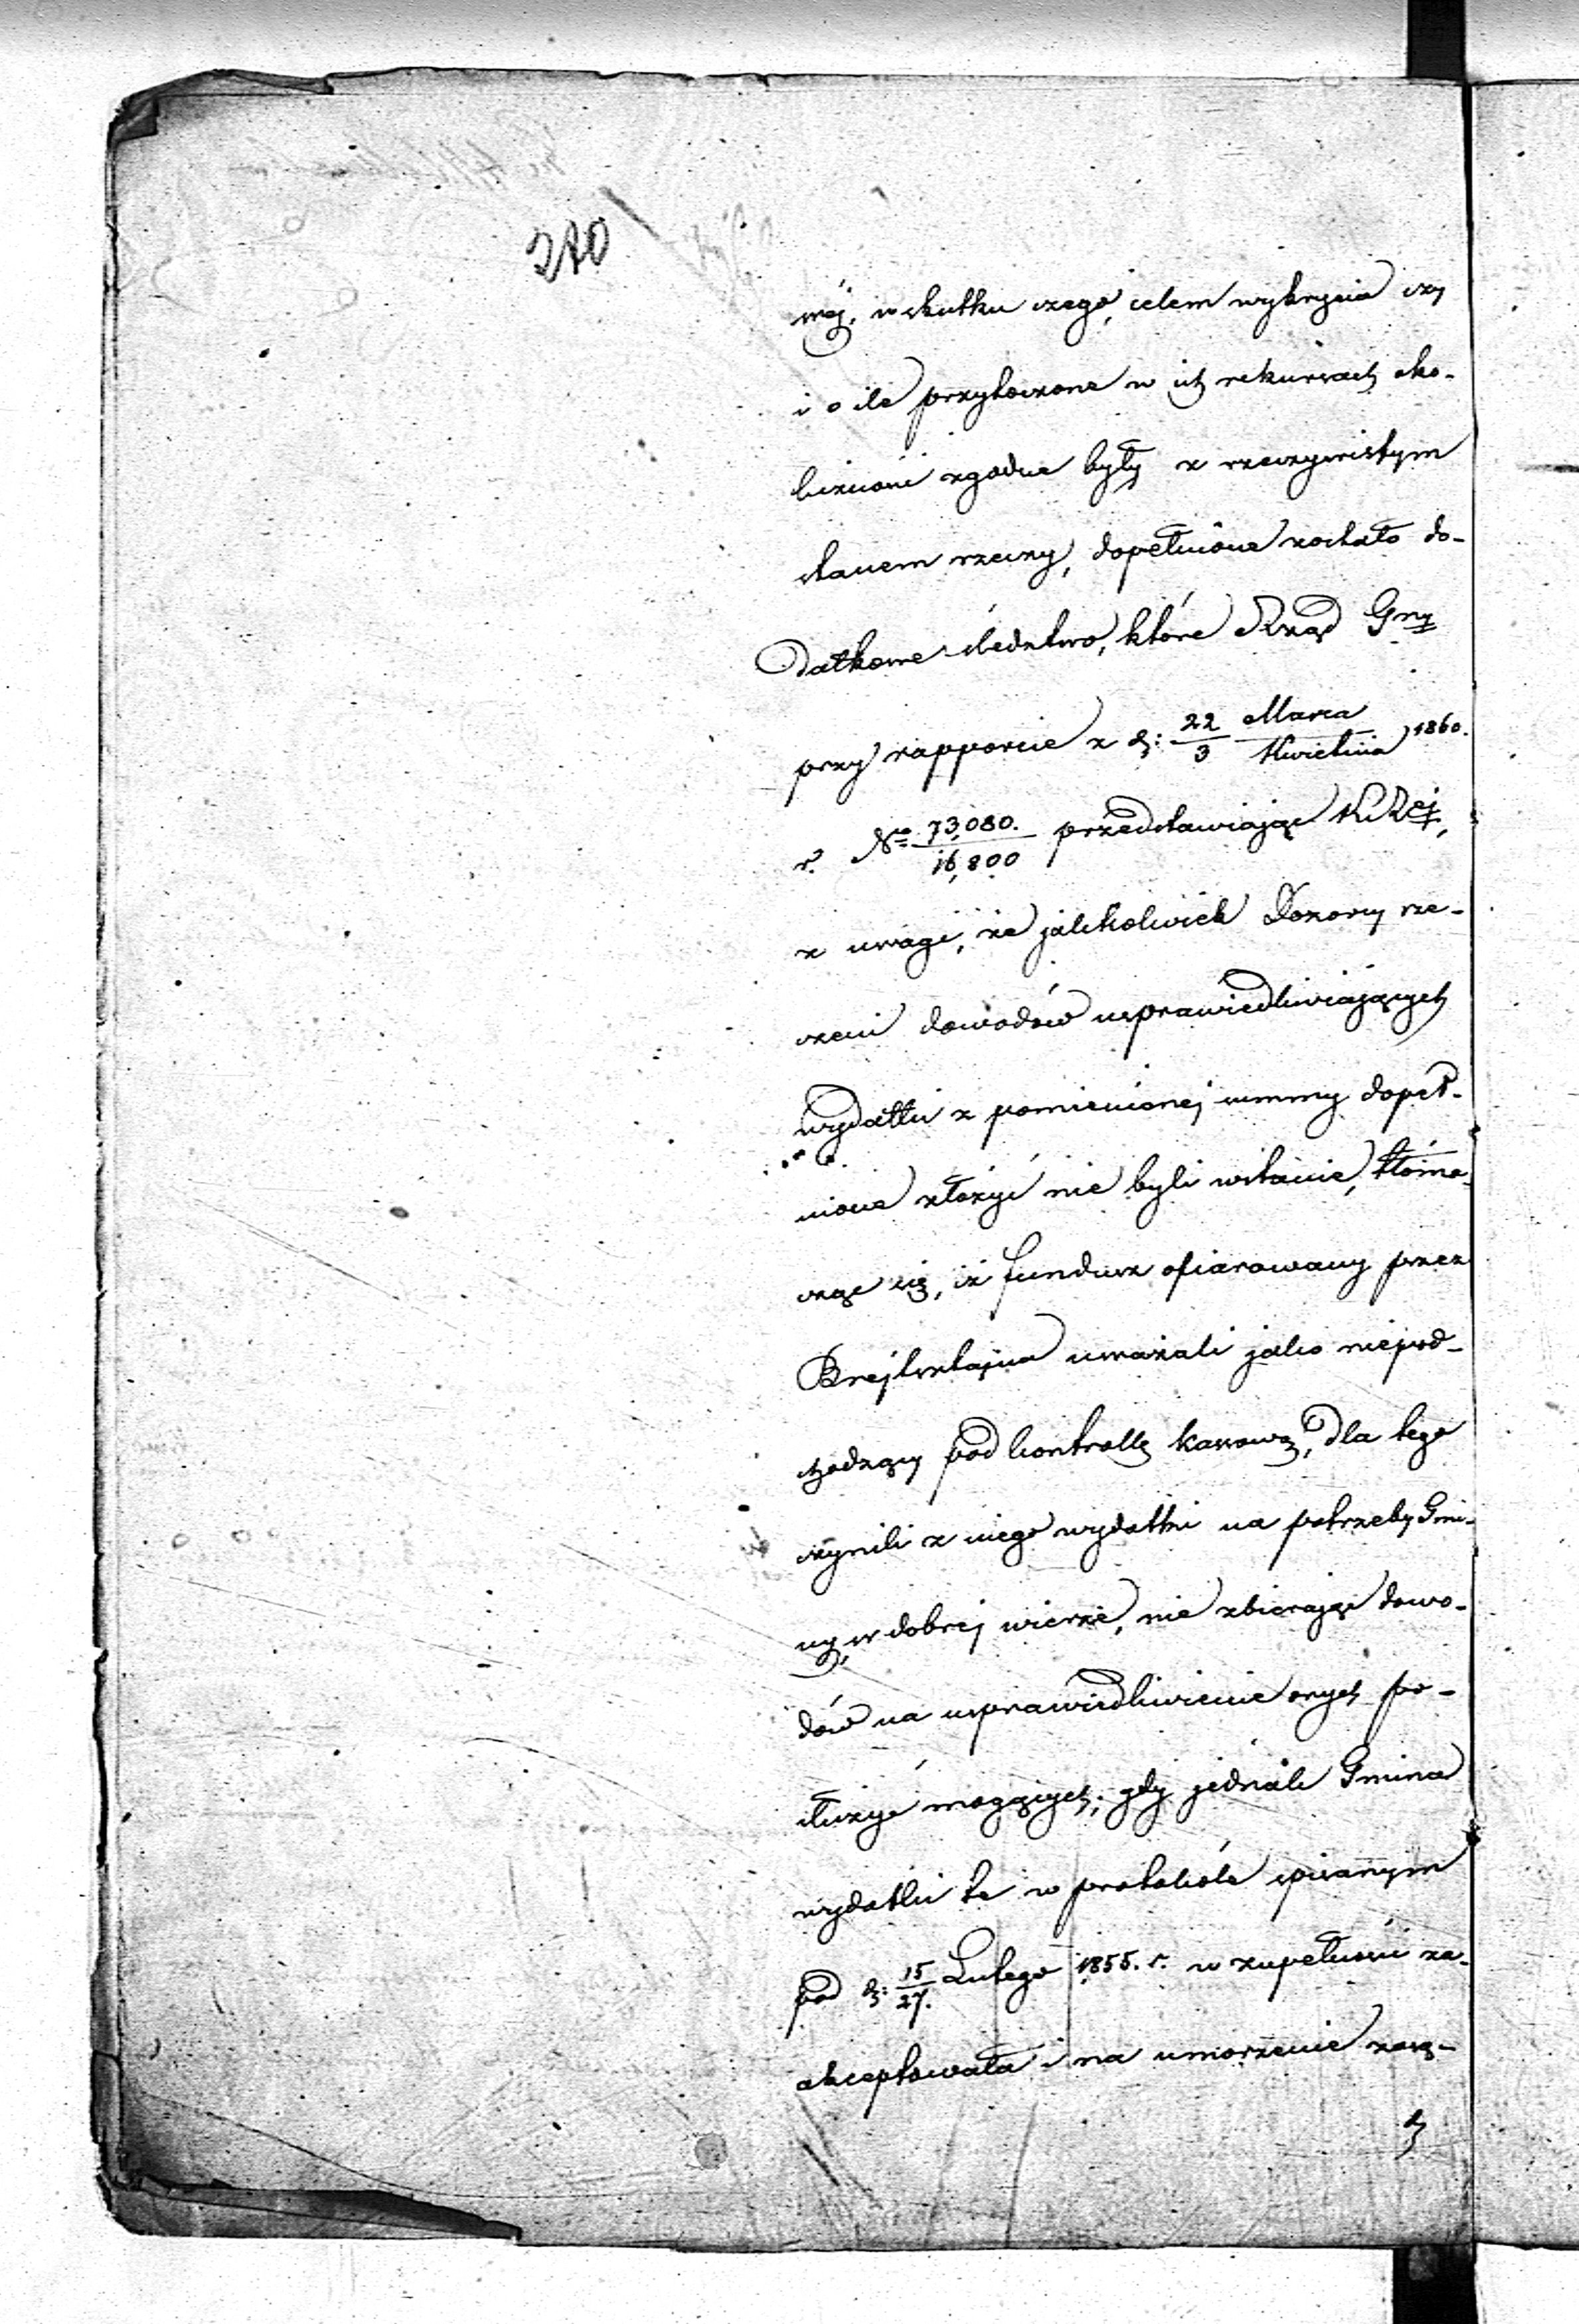 270
wéj, w skutku czego, celem wykrycia czy
i o ile przytoczone w ich rekursach oko-
liczności zgodne były z rzeczywistym
stanem rzeczy, dopełnione zostało do-
datkowe śledztwo, które Rząd Gny
przy rapporcie z d: 22/3 Marca/Kwietnia 1860.
r. No 73,080./16,800 przedstawiając KRej,
z uwagi, że jakkolwiek Dozorcy rze-
czeni dowodów usprawiedliwiających
wydatki z pomienionej summy dopeł-
nione złożyć nie byli wstanie, tłóma-
cząc się, iż fundusz ofiarowany przez
Brejtsztajna uważali jako niepod-
chodzący pod kontrollę kassową, dla tego
czynili z niego wydatki na potrzeby Gmi-
ny, w dobrej wierze, nie zbierając dowo-
dów na usprawiedliwienie onych po-
służyć mogących; gdy jednak Gmina
wydatki te w protokóle spisanym
pod d: 15/27. Lutego 1855. r. w zupełności za-
akceptowała i na umorzenie zasą-